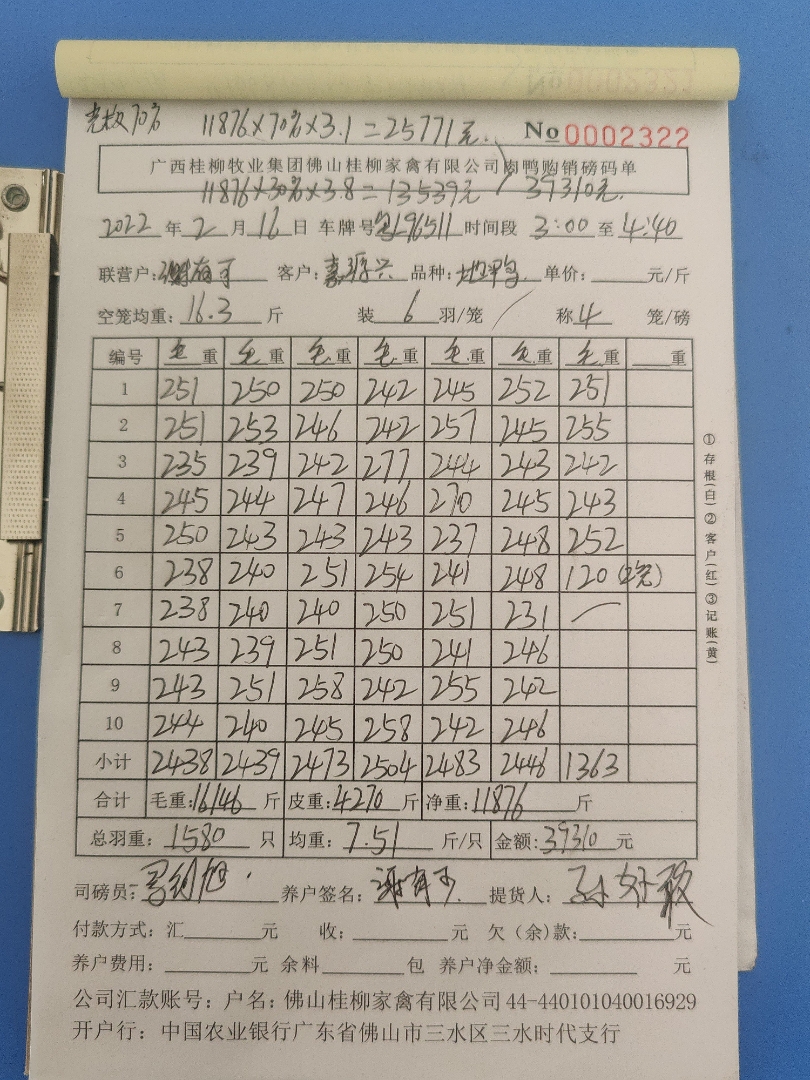 毛收70% 11876×70%×3.1=25771元.
No 0002322
广西桂柳牧业集团佛山桂柳家禽有限公司肉鸭购销磅码单
11876×30%×3.8=13539元 39310元.
2022年2月16日 车牌号96511 时间段 3:00至4:40
联营户: 客户: 品种: 单价: 元/斤
空笼均重: 16.3 斤 装 6 羽/笼 称 4 笼/磅
编号 毛重 毛重 毛重 毛重 毛重 毛重 毛重 重
1 251 250 250 242 245 252 251
2 251 253 246 242 257 245 255
3 235 239 242 277 244 243 242
4 245 244 247 246 270 245 243
5 250 243 243 243 237 248 252
6 238 240 251 254 241 248 120(2笼)
7 238 240 240 250 251 231
8 243 239 251 250 241 246
9 243 251 258 242 255 242
10 244 240 245 258 242 246
小计 2438 2439 2473 2504 2483 2446 1363
合计 毛重:16146斤 皮重:4270斤 净重:11876斤
总羽重:1580只 均重:7.51斤/只 金额:39310元
司磅员: 养户签名: 提货人:
付款方式:汇 元 收: 元 欠(余)款: 元
养户费用: 元 余料 包 养户净金额; 元
公司汇款账号:户名:佛山桂柳家禽有限公司44-440101040016929
开户行:中国农业银行广东省佛山市三水区三水时代支行
①存根(白)②客户(红)③记账(黄)